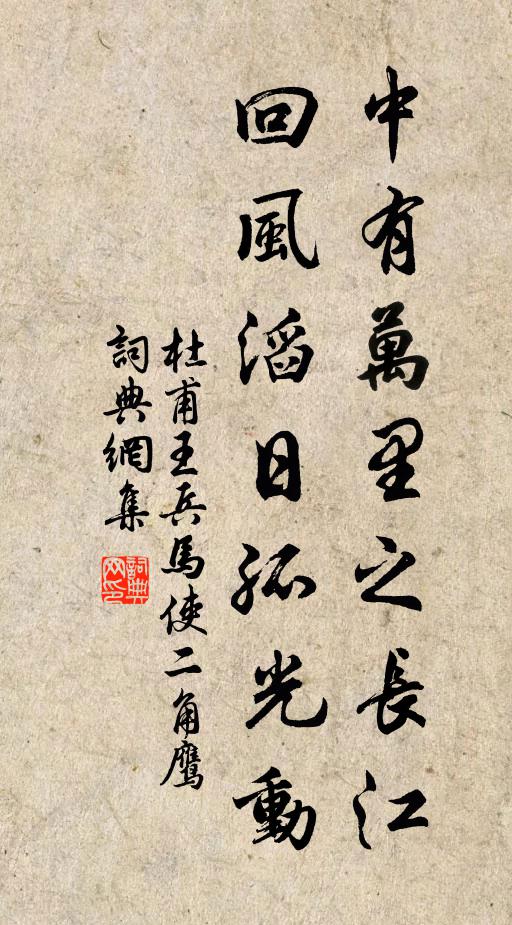 中有萬里之長江
回風滔日孤光動
杜甫王兵馬使二角鷹
詞典網集
詞典网印